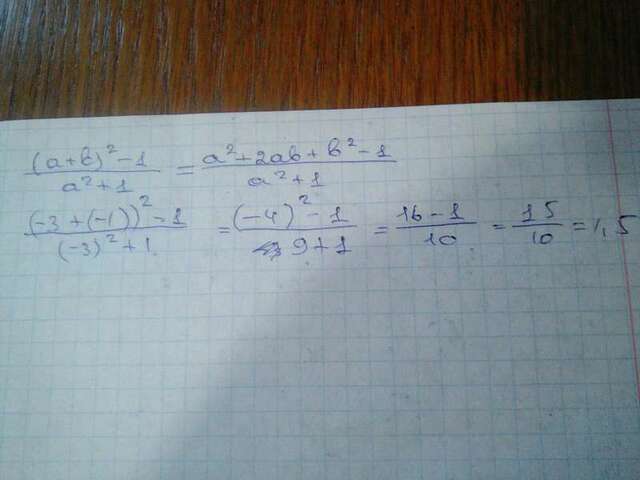 (a+b)²-1/a²+1 = a²+2ab+b²-1/a²+1
(-3+(-1))²-1/(-3)²+1 = (-4)²-1/9+1 = 16-1/10 = 15/10 = 1,5